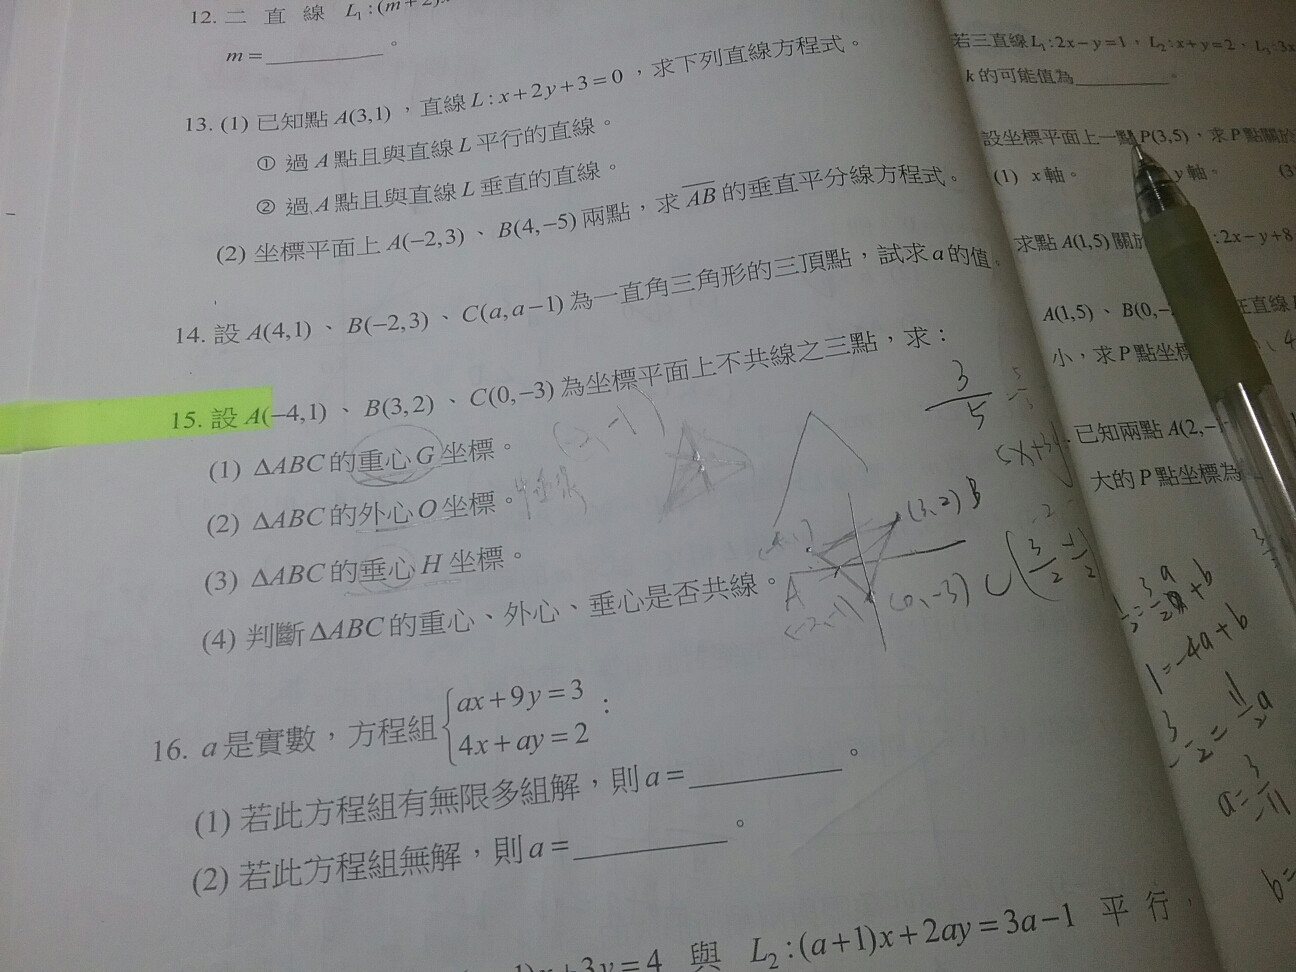 12. 二直線 L₁:(m+2)
m=________。
13. (1) 已知點A(3,1)，直線L:x+2y+3=0，求下列直線方程式。
① 過A點且與直線L平行的直線。
② 過A點且與直線L垂直的直線。
(2) 坐標平面上A(−2,3)、B(4,−5)兩點，求AB的垂直平分線方程式。
14. 設A(4,1)、B(−2,3)、C(a,a−1)為一直角三角形的三頂點，試求a的值
15. 設A(−4,1)、B(3,2)、C(0,−3)為坐標平面上不共線之三點，求：
(1) ΔABC的重心G坐標。
(2) ΔABC的外心O坐標。
(3) ΔABC的垂心H坐標。
(4) 判斷ΔABC的重心、外心、垂心是否共線。
16. a是實數，方程組{ax+9y=3
4x+ay=2：
(1) 若此方程組有無限多組解，則a=________。
(2) 若此方程組無解，則a=________。
3y=4 與 L₂:(a+1)x+2ay=3a−1 平行，
若三直線L₁:2x−y=1，L₂:x+y=2，L₃:3x
k的可能值為________。
設坐標平面上一點P(3,5)，求P點關於
(1) x軸。
y軸。
(3
求點A(1,5)關於
:2x−y+8
A(1,5)、B(0,−
在直線
小，求P點坐標
已知兩點A(2,−
大的P點坐標為
(-2,-1)
3/5
(3,2) B
A
(-2,-1)
(0,-3) C
1=-4a+b